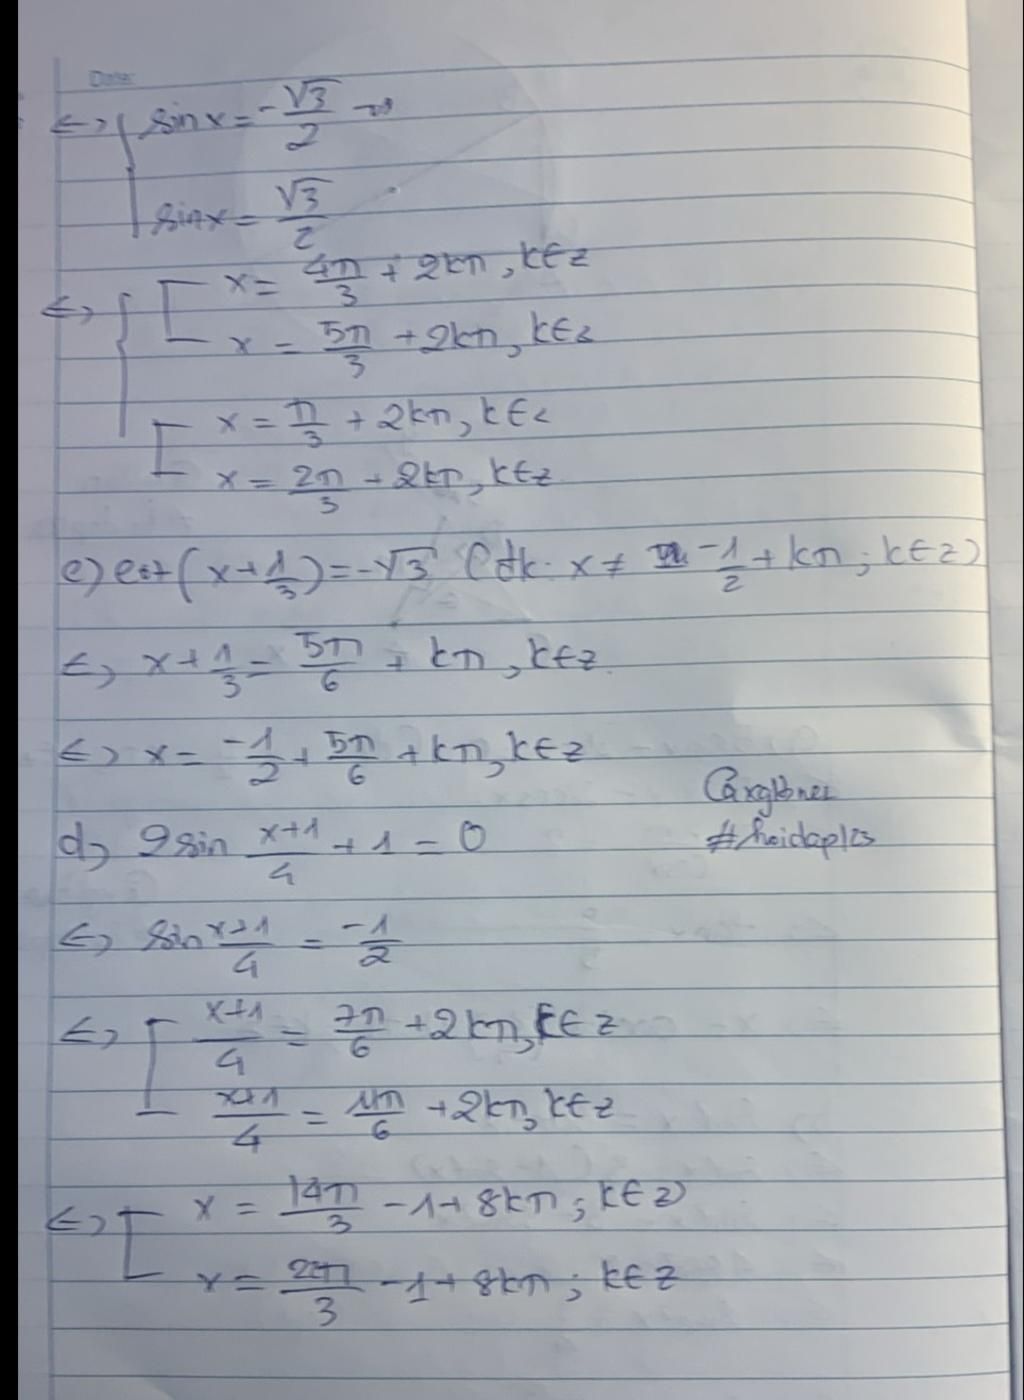 Date:
<=> { sin x = -√3/2
sin x = √3/2
<=> { [ x = 4π/3 + 2kπ, k∈z
x = 5π/3 + 2kπ, k∈z
[ x = π/3 + 2kπ, k∈z
x = 2π/3 + 2kπ, k∈z
c) cot(x+1/3) = -√3 (đk: x ≠ -1/2 + kπ; k∈z)
<=> x + 1/3 = 5π/6 + kπ, k∈z
<=> x = -1/2 + 5π/6 + kπ, k∈z
d, 2sin x+1/4 + 1 = 0
#hoidap
<=> sin x+1/4 = -1/2
<=> [ x+1/4 = 7π/6 + 2kπ, k∈z
x+1/4 = 11π/6 + 2kπ, k∈z
<=> [ x = 14π/3 - 1 + 8kπ; k∈z
x = 22π/3 - 1 + 8kπ; k∈z